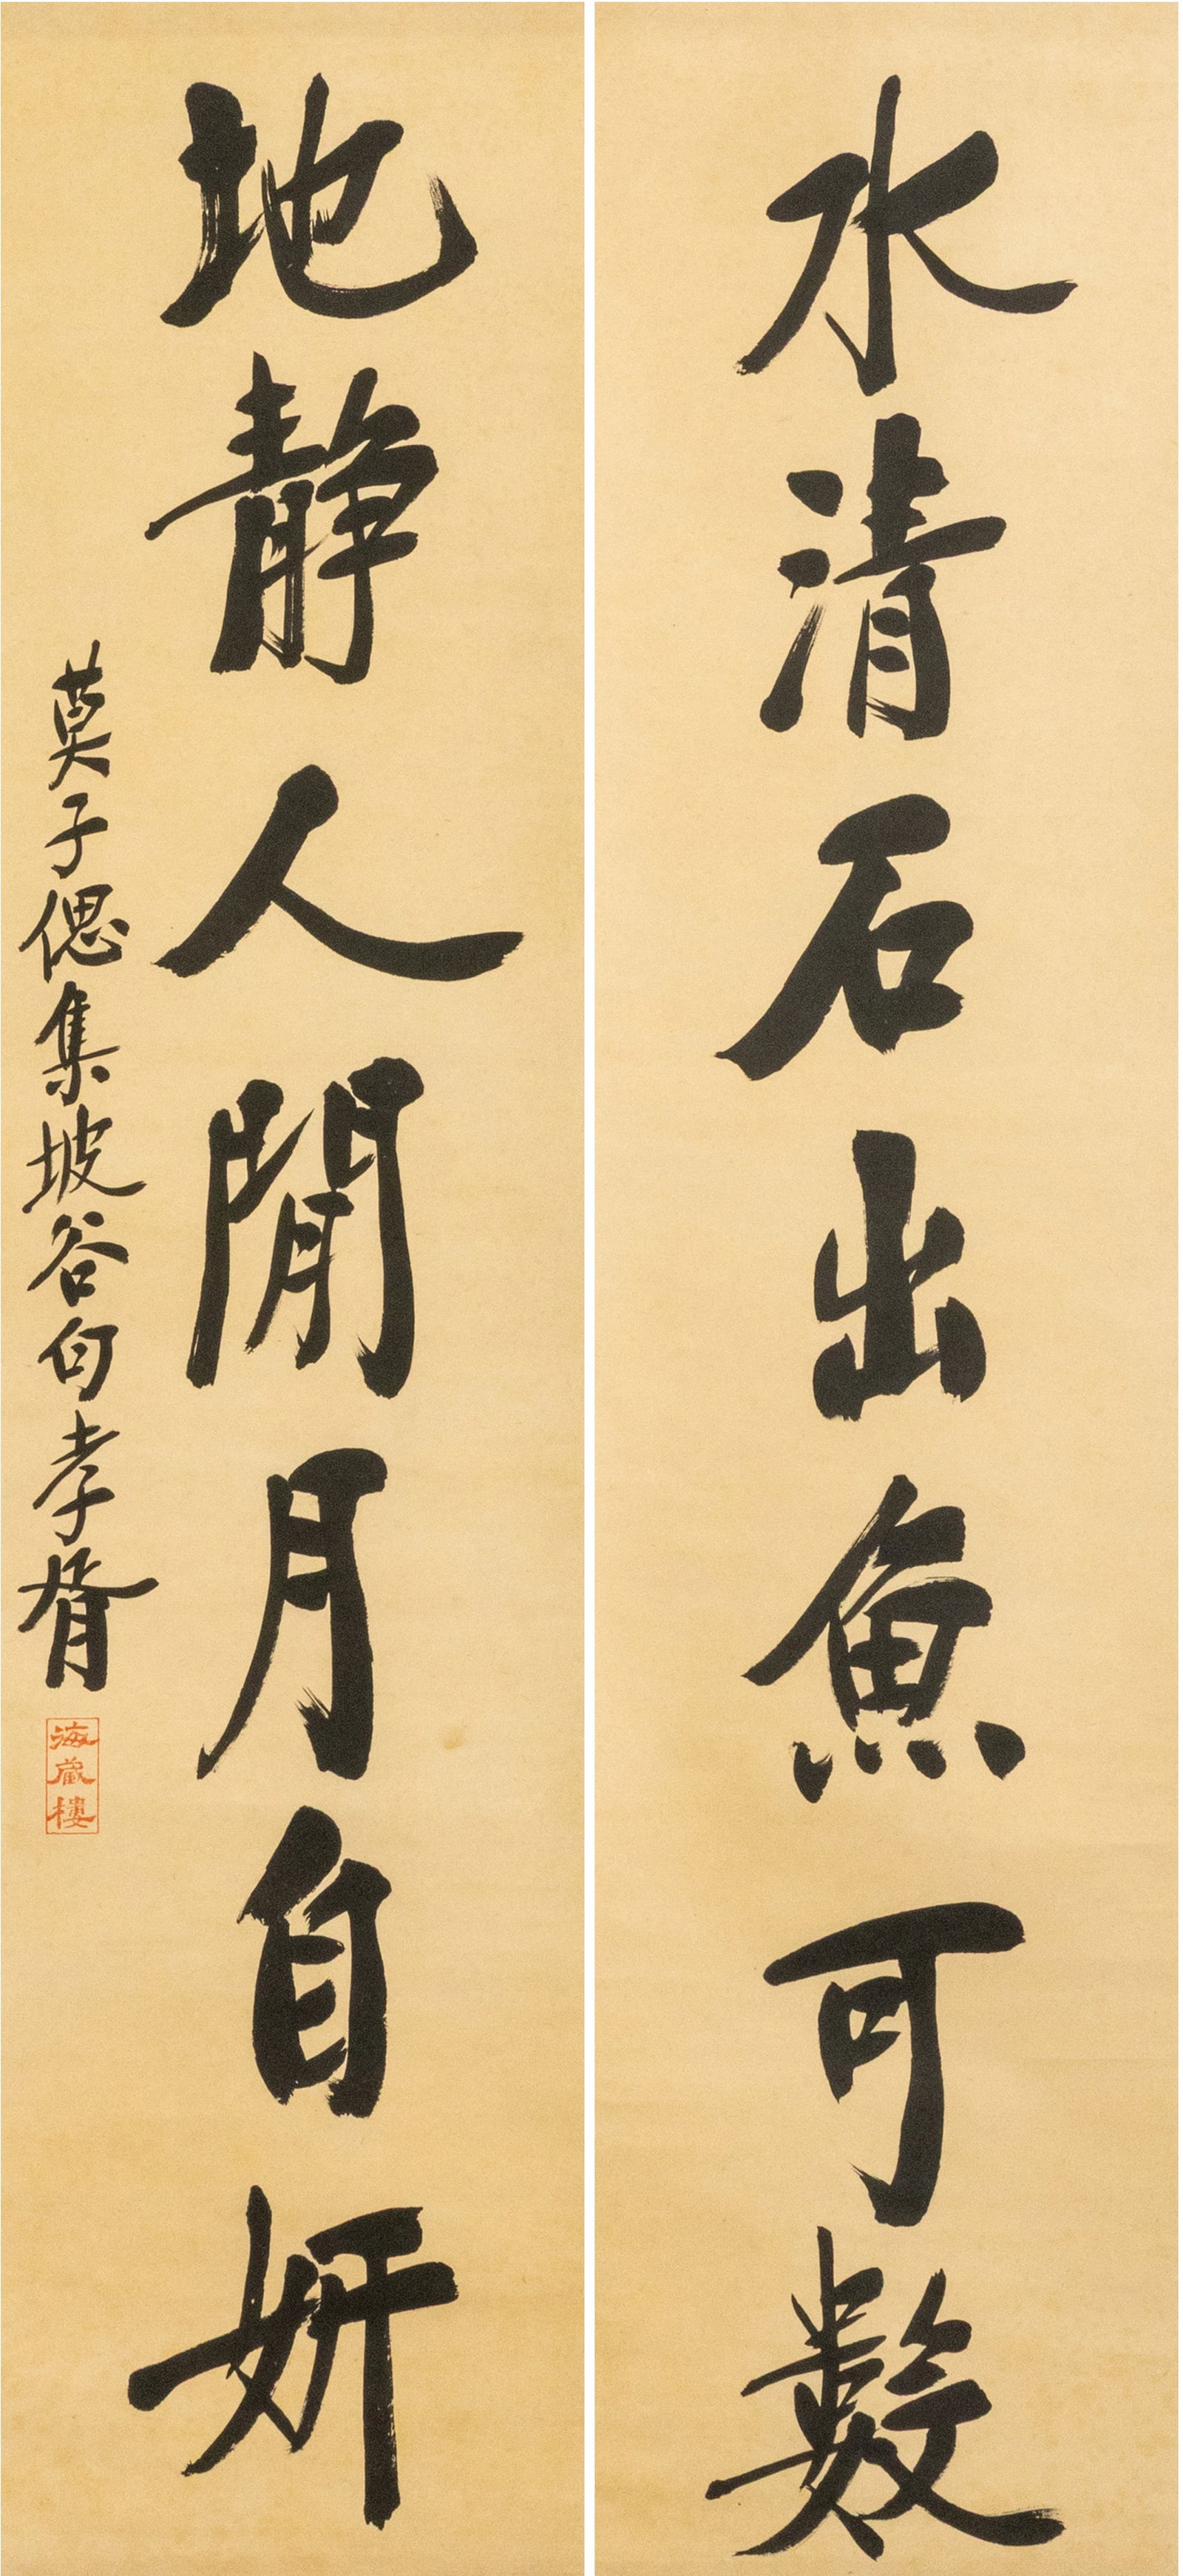 水清石出魚可數
地靜人閒月自妍
莫子偲集坡谷句孝胥
海藏樓